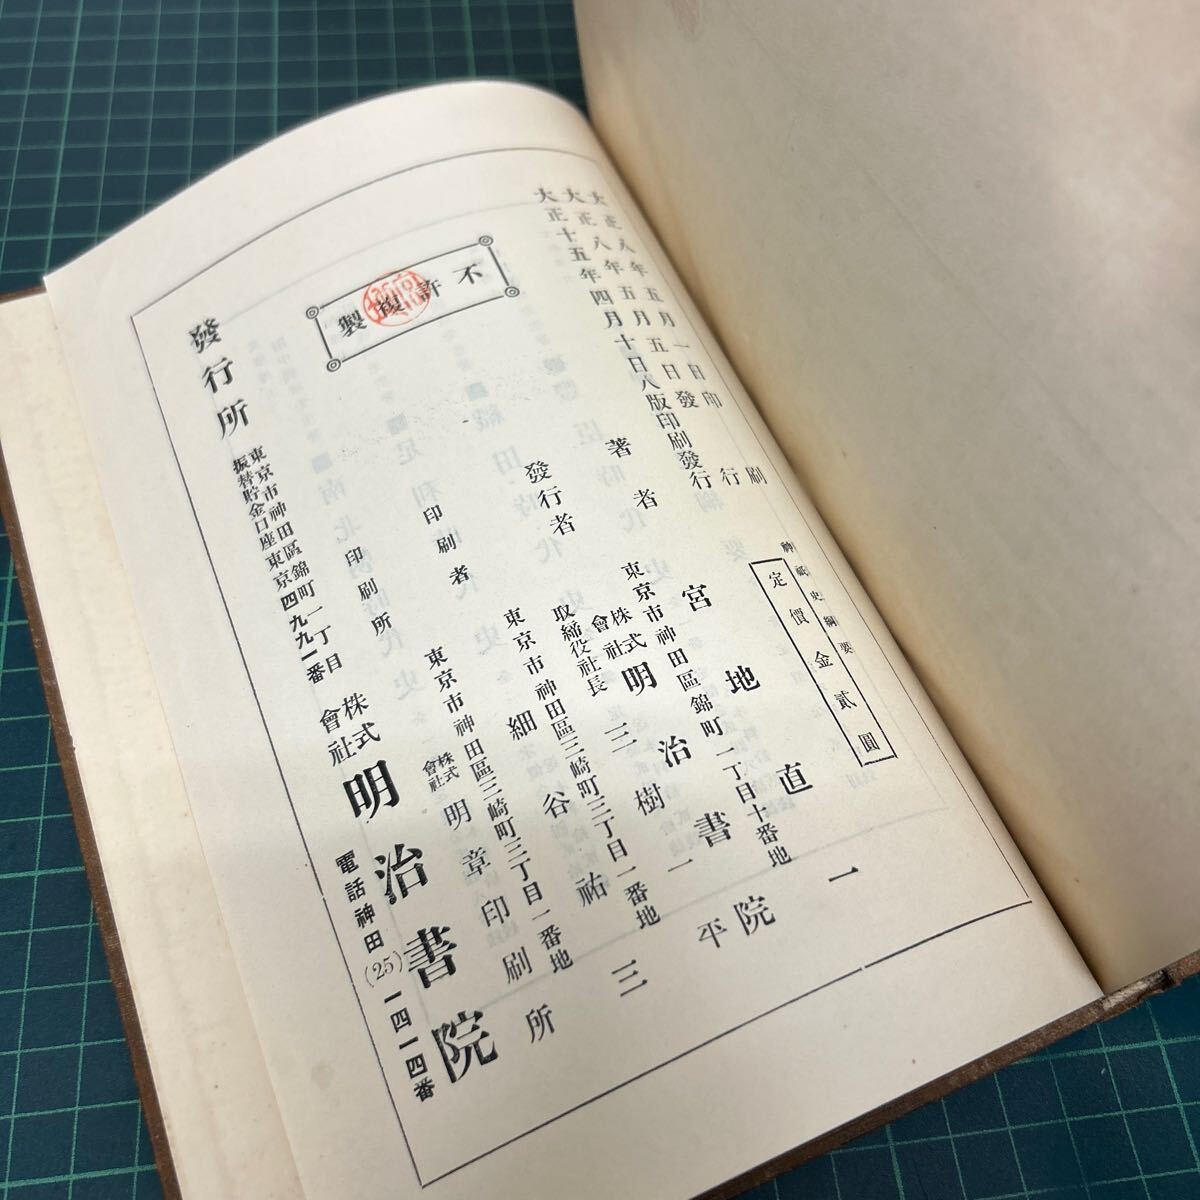 大正八年五月一日印刷
大正八年五月五日發行
大正十五年四月十日八版印刷發行
神祇史綱要
定價金貳圓
不許複製
著者 宮地直一
東京市神田區錦町一丁目十番地
發行者 株式會社 明治書院
取締役社長 三樹一平
東京市神田區三崎町三丁目一番地
印刷者 細谷祐三
東京市神田區三崎町三丁目一番地
印刷所 株式會社 明章印刷所
發行所 東京市神田區錦町一丁目 株式會社 明治書院
振替貯金口座東京四九九一番
電話神田(25)一四一四番